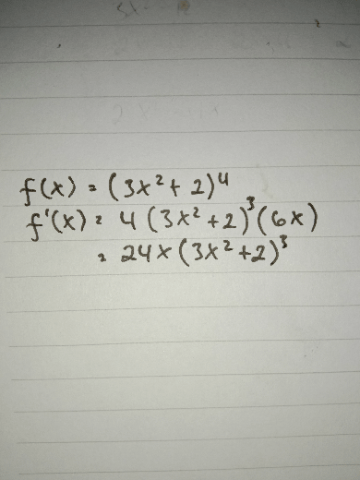 f(x) = (3x² + 2)⁴
f'(x) = 4 (3x² + 2)³ (6x)
= 24x (3x² + 2)³